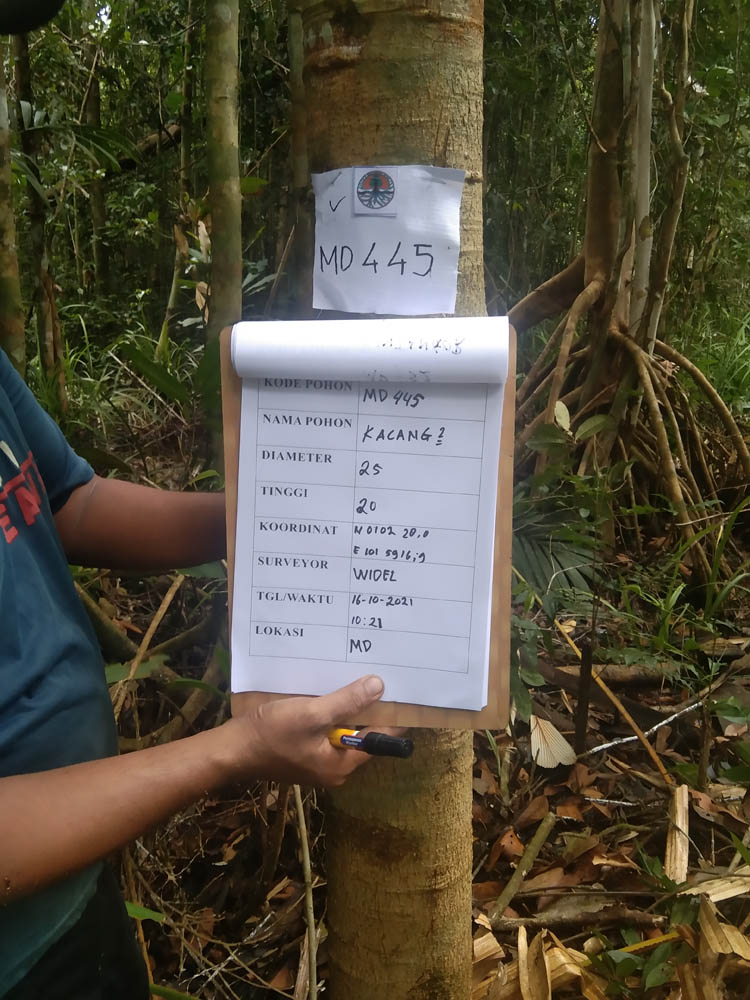 MD 445
KODE POHON MD 445
NAMA POHON KACANG2
DIAMETER 25
TINGGI 20
KOORDINAT N 0102 20,0
E 101 5916,9
SURVEYOR WIDEL
TGL/WAKTU 16-10-2021
10:21
LOKASI MD